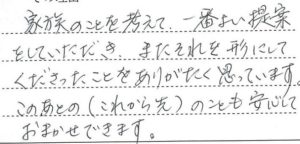 家族のことを考えて、一番よい提案
をしていただき、またそれを形にして
くださったことをありがたく思っています。
このあとの(これから先)のことも安心して
おまかせできます。